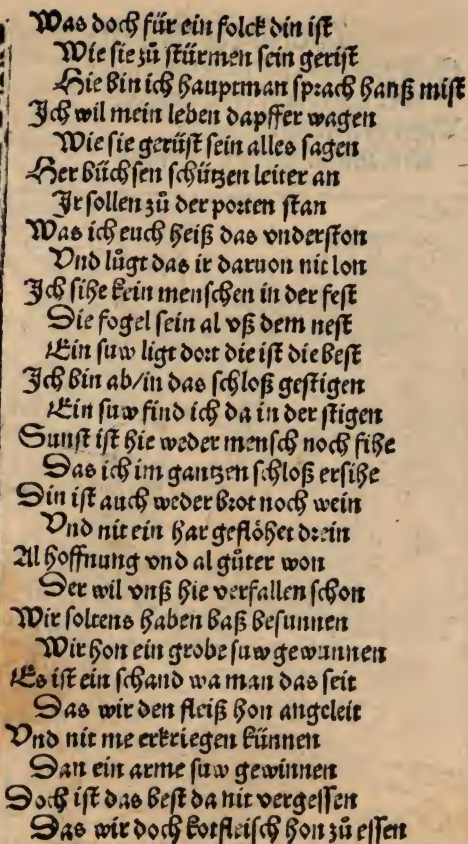 Was doch für ein folck din ist
Wie sie zů stürmen sein gerist
Hie bin ich hauptman sprach hanß mist
Ich wil mein leben dapffer wagen
Wie sie gerüst sein alles sagen
Her büchsen schützen leiter an
Ir sollen zů der porten stan
Was ich euch heiß das vnderston
Vnd lůgt das ir daruon nit lon
Ich sihe kein menschen in der fest
Die fogel sein al vß dem nest
Ein suw ligt dort die ist die best
Ich bin ab/in das schloß gestigen
Ein suw find ich da in der stigen
Sunst ist hie weder mensch noch fihe
Das ich im gantzen schloß ersihe
Din ist auch weder brot noch wein
Vnd nit ein har geflöhet drein
Al hoffnung vnd al gůter won
Der wil vnß hie verfallen schon
Wir soltens haben baß besunnen
Wir hon ein grobe suw gewunnen
Es ist ein schand wa man das seit
Das wir den fleiß hon angeleit
Vnd nit me erkriegen künnen
Dan ein arme suw gewinnen
Doch ist das best da nit vergessen
Das wir doch kotfleisch hon zů essen